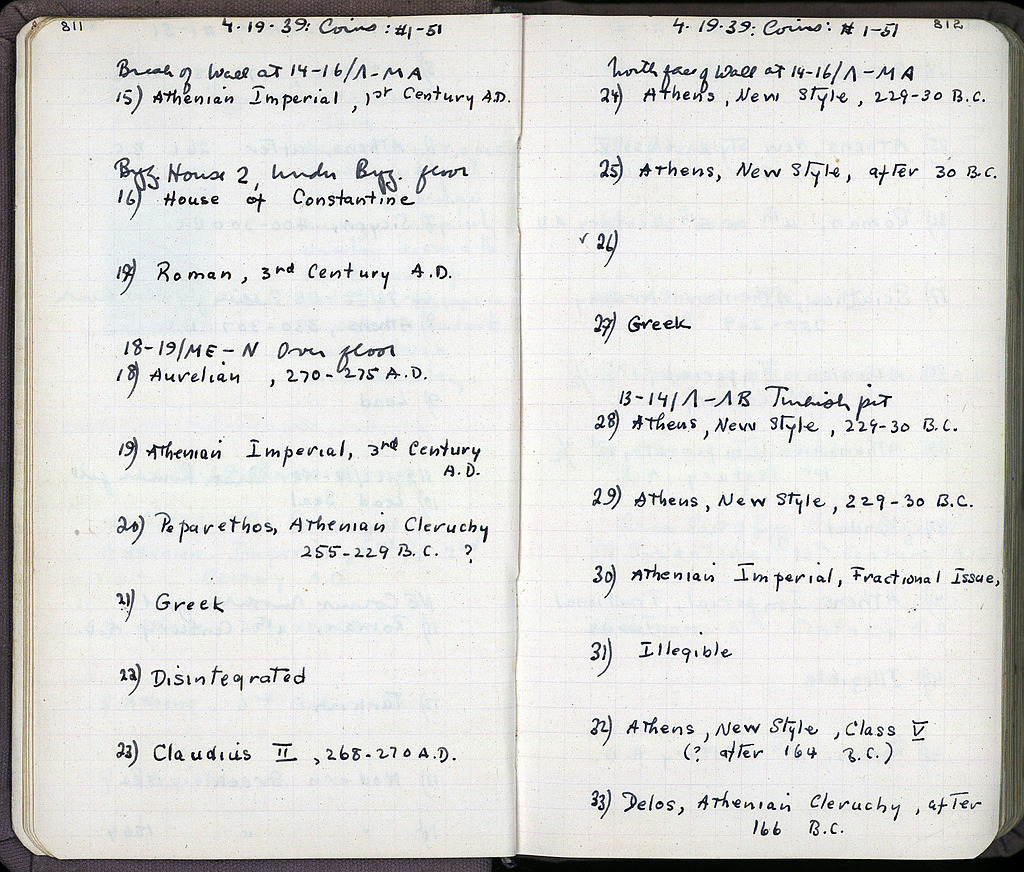 811
4-19-39: Coins: #1-51
Break of Wall at 14-16/Λ-MA
15) Athenian Imperial, 1st Century A.D.
Byz. House 2, under Byz. floor
16) House of Constantine
17) Roman, 3rd Century A.D.
18-19/ME-N Over floor
18) Aurelian, 270-275 A.D.
19) Athenian Imperial, 3rd Century
A.D.
20) Peparethos, Athenian Cleruchy
255-229 B.C. ?
21) Greek
22) Disintegrated
23) Claudius II, 268-270 A.D.
812
4-19-39: Coins: #1-51
North face of Wall at 14-16/Λ-MA
24) Athens, New Style, 229-30 B.C.
25) Athens, New Style, after 30 B.C.
✓ 26)
27) Greek
13-14/Λ-ΛB Turkish pit
28) Athens, New Style, 229-30 B.C.
29) Athens, New Style, 229-30 B.C.
30) Athenian Imperial, Fractional Issue,
31) Illegible
32) Athens, New Style, Class V
(? after 164 B.C.)
33) Delos, Athenian Cleruchy, after
166 B.C.